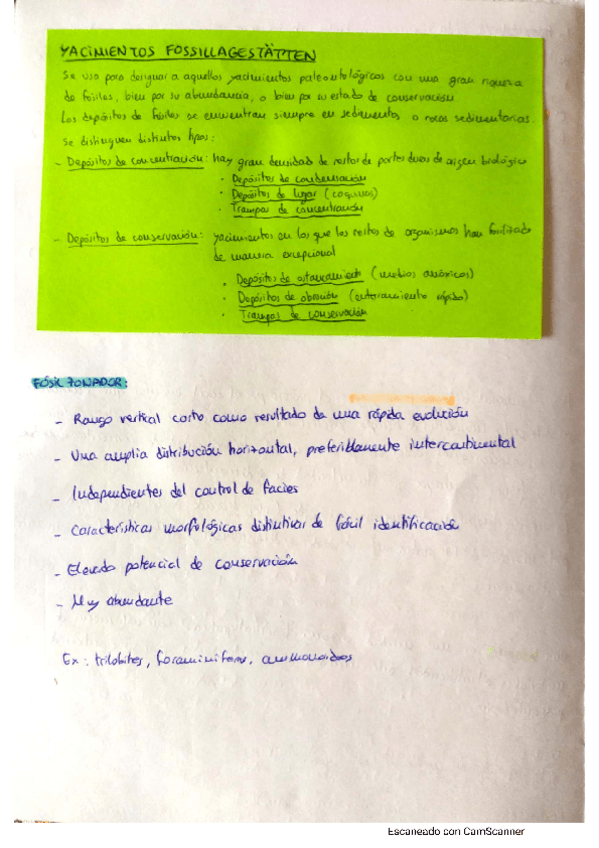 YACIMIENTOS FOSSILLAGESTÄTTEN
Se usa para designar a aquellos yacimientos paleontológicos con una gran riqueza
de fósiles, bien por su abundancia, o bien por su estado de conservación.
Los depósitos de fósiles se encuentran siempre en sedimentos o rocas sedimentarias.
Se distinguen distintos tipos:
- Depósitos de concentración: hay gran densidad de restos de partes duras de origen biológico
• Depósitos de condensación
• Depósitos de lugar (coquinas)
• Trampas de concentración
- Depósitos de conservación: yacimientos en los que los restos de organismos han fosilizado
de manera excepcional
• Depósitos de estancamiento (medios anóxicos)
• Depósitos de obrución (enterramiento rápido)
• Trampas de conservación
FÓSIL ZONADOR:
- Rango vertical corto como resultado de una rápida evolución
- Una amplia distribución horizontal, preferiblemente intercontinental
- Independientes del control de facies
- Características morfológicas distintivas de fácil identificación
- Elevado potencial de conservación
- Muy abundante
Ex: trilobites, foraminíferos, ammonoideos
Escaneado con CamScanner